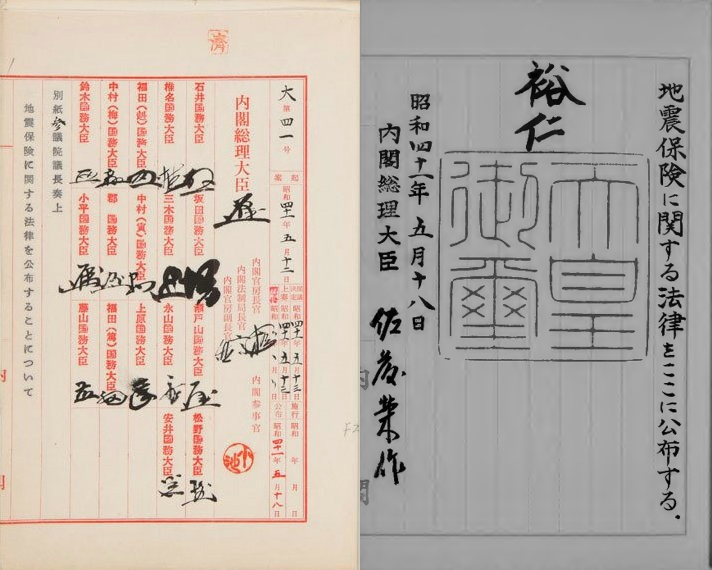 大第四一号
起案 昭和四十一年五月十二日
閣議決定 昭和四十一年五月十三日 施行 昭和 年 月 日
上奏 昭和四十一年五月十三日 公布 昭和四十一年五月十八日
内閣総理大臣
内閣官房長官 内閣参事官
内閣法制局長官
内閣官房副長官
石井国務大臣 坂田国務大臣 瀬戸山国務大臣 松野国務大臣
椎名国務大臣 三木国務大臣 永山国務大臣 安井国務大臣
福田(赳)国務大臣 中村(寅)国務大臣 上原国務大臣
中村(梅)国務大臣 郡 国務大臣 福田(篤)国務大臣
鈴木国務大臣 小平国務大臣 藤山国務大臣
別紙参議院議長奏上
地震保険に関する法律を公布することについて
地震保険に関する法律をここに公布する。
裕仁
天皇御璽
昭和四十一年五月十八日
内閣総理大臣 佐藤榮作